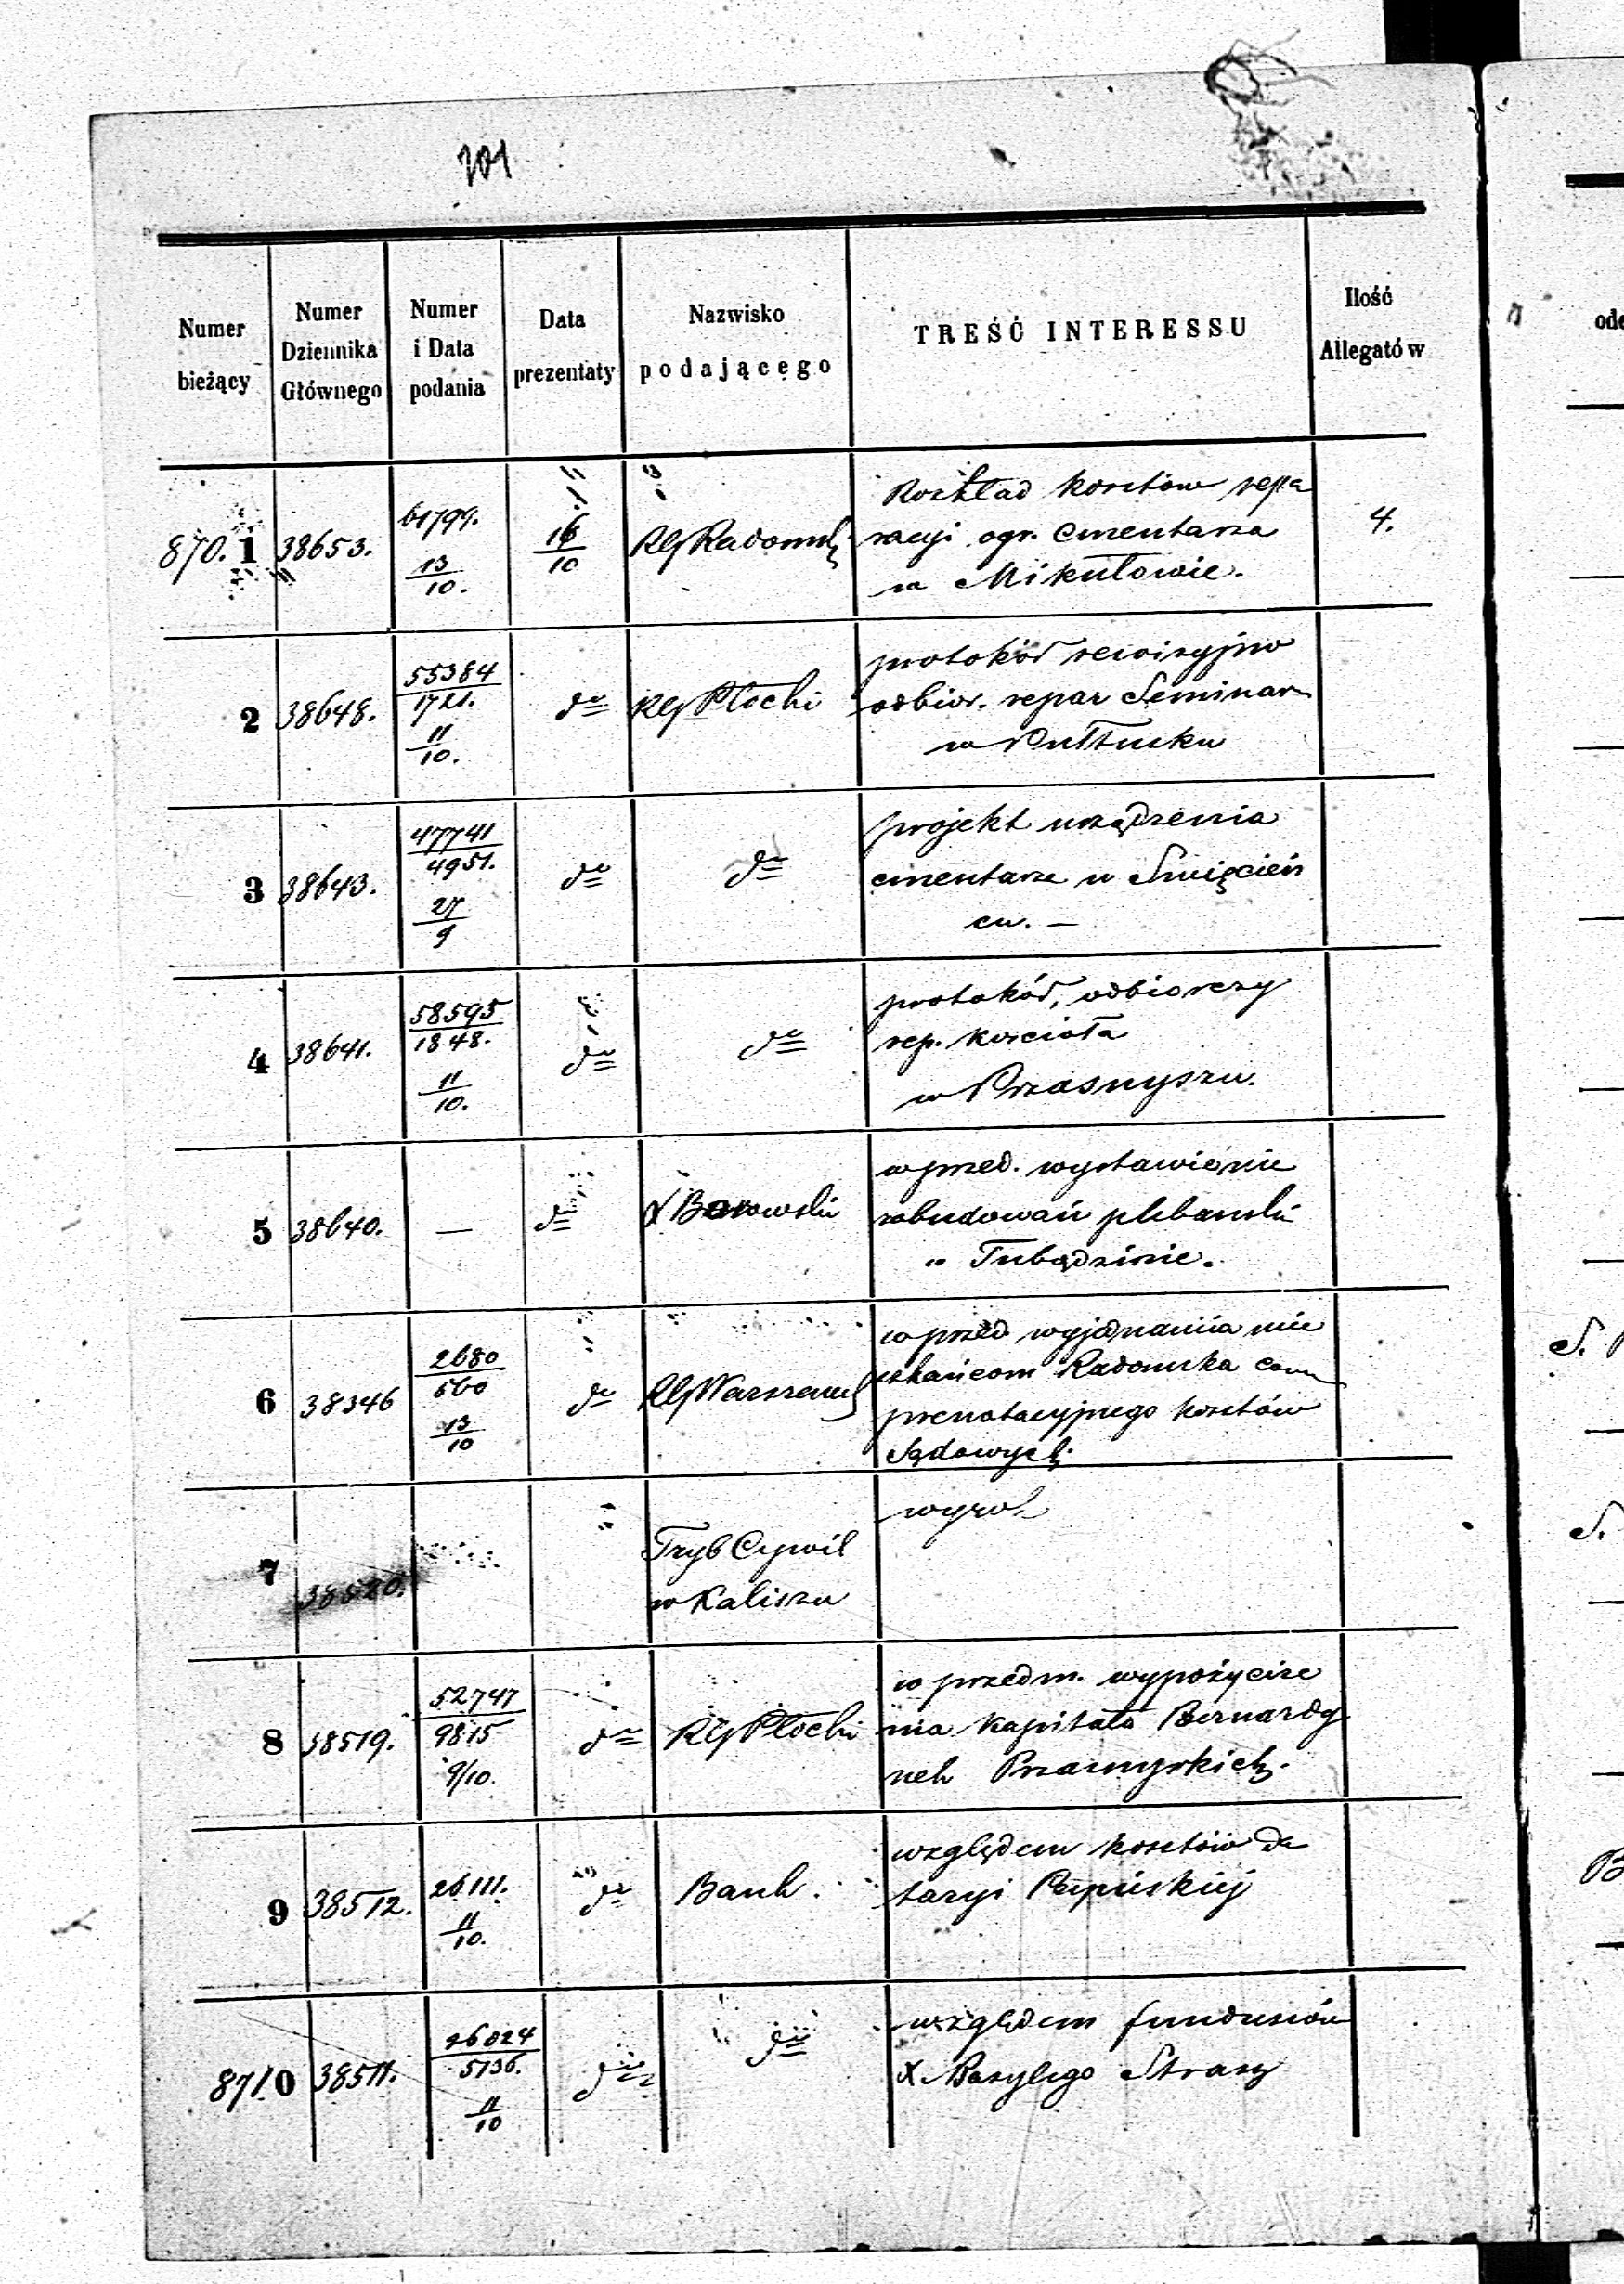 201
Numer bieżący
Numer Dziennika Głównego
Numer i Data podania
Data prezentaty
Nazwisko podającego
TREŚĆ INTERESSU
Ilość Allegatów
870.1 38653. 61799. 13/10. 16/10 RG Radomsk Rozkład kosztów repa
racyi ogr. cmentarza
w Mikułowie.
4.
2 38648. 55384/1721. 11/10. do RG Płocki protokół rewizyjno
odbior. repar Seminar
w Pułtusku
3 38643. 47741/4951. 27/9 do do projekt urządzenia
cmentarza w Święcień
cu. —
4 38641. 58595/1848. 11/10. do do protokół odbiorczy
rep. kościoła
w Przasnyszu.
5 38640. — do X Borowski w przed. wystawienie
zabudowań plebański
w Tubądzinie.
6 38346 2680/560 13/10 do RG Warszaws w przed wyjednania mie
szkańcom Radomska
prenotacyjnego kosztów
Sądowych.
7 38520. Tryb Cywil
w Kaliszu
wyrok
8 38519. 52747/9815 9/10. do RG Płocki w przedm. wypożycze
nia kapitału Bernardy
nek Przasnyskich.
9 38512. 26111. 11/10. do Bank. względem kosztów Da
taryi Papieskiej
871.0 38511. 26024/5136. 11/10 do do względem funduszów
X. Bazylego Strasz